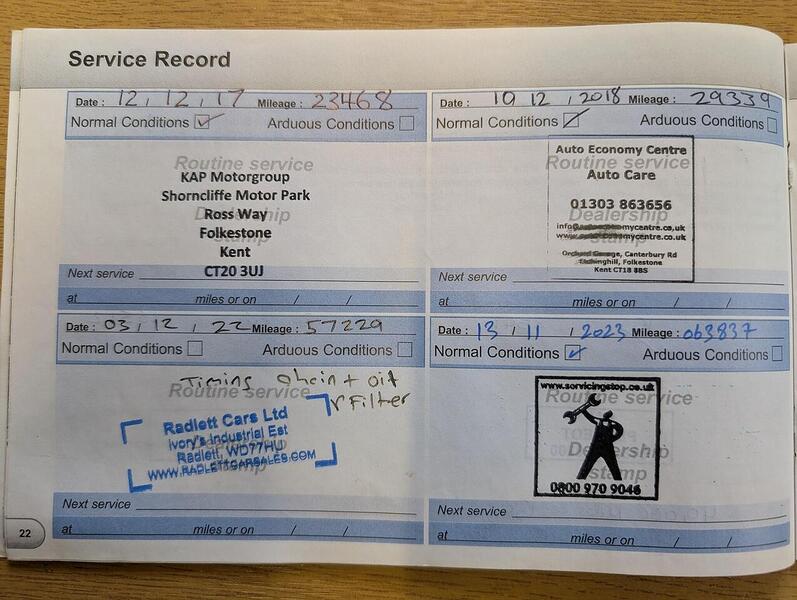 Service Record
Date : 12 , 12 , 17 Mileage : 23468
Normal Conditions ✓ Arduous Conditions
Routine service
KAP Motorgroup
Shorncliffe Motor Park
Ross Way
Dealership
Folkestone
stamp
Kent
CT20 3UJ
Next service
at miles or on / /
Date : 10 12 , 2018 Mileage : 29339
Normal Conditions Arduous Conditions
Auto Economy Centre
Routine service
Auto Care
01303 863656
Dealership
stamp
Canterbury Rd
Folkestone
Kent CT18 8BS
Next service
at miles or on / /
Date : 03 , 12 , 22 Mileage : 57229
Normal Conditions Arduous Conditions
Timing chain + oil
Routine service
Filter
Radlett Cars Ltd
Ivory's Industrial Est
Dealership
Radlett, WD77HU
stamp
WWW.RADLETTCARSALES.COM
Next service
at miles or on / /
Date : 13 , 11 , 2023 Mileage : 063837
Normal Conditions ✓ Arduous Conditions
www.servicingstop.co.uk
Routine service
Dealership
stamp
0800 970 9046
Next service
at miles or on / /
22